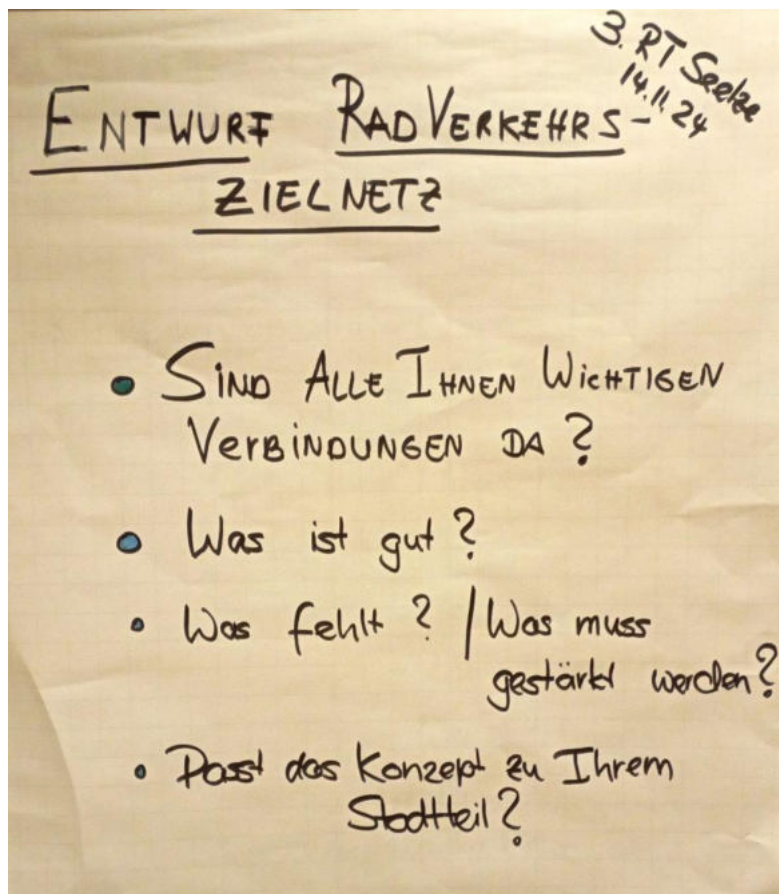 3. RT Seelze
14.11.24
ENTWURF RADVERKEHRS-
ZIELNETZ
• SIND ALLE IHNEN WICHTIGEN
VERBINDUNGEN DA?
• Was ist gut?
• Was fehlt? / Was muss
gestärkt werden?
• Passt das Konzept zu Ihrem
Stadtteil?